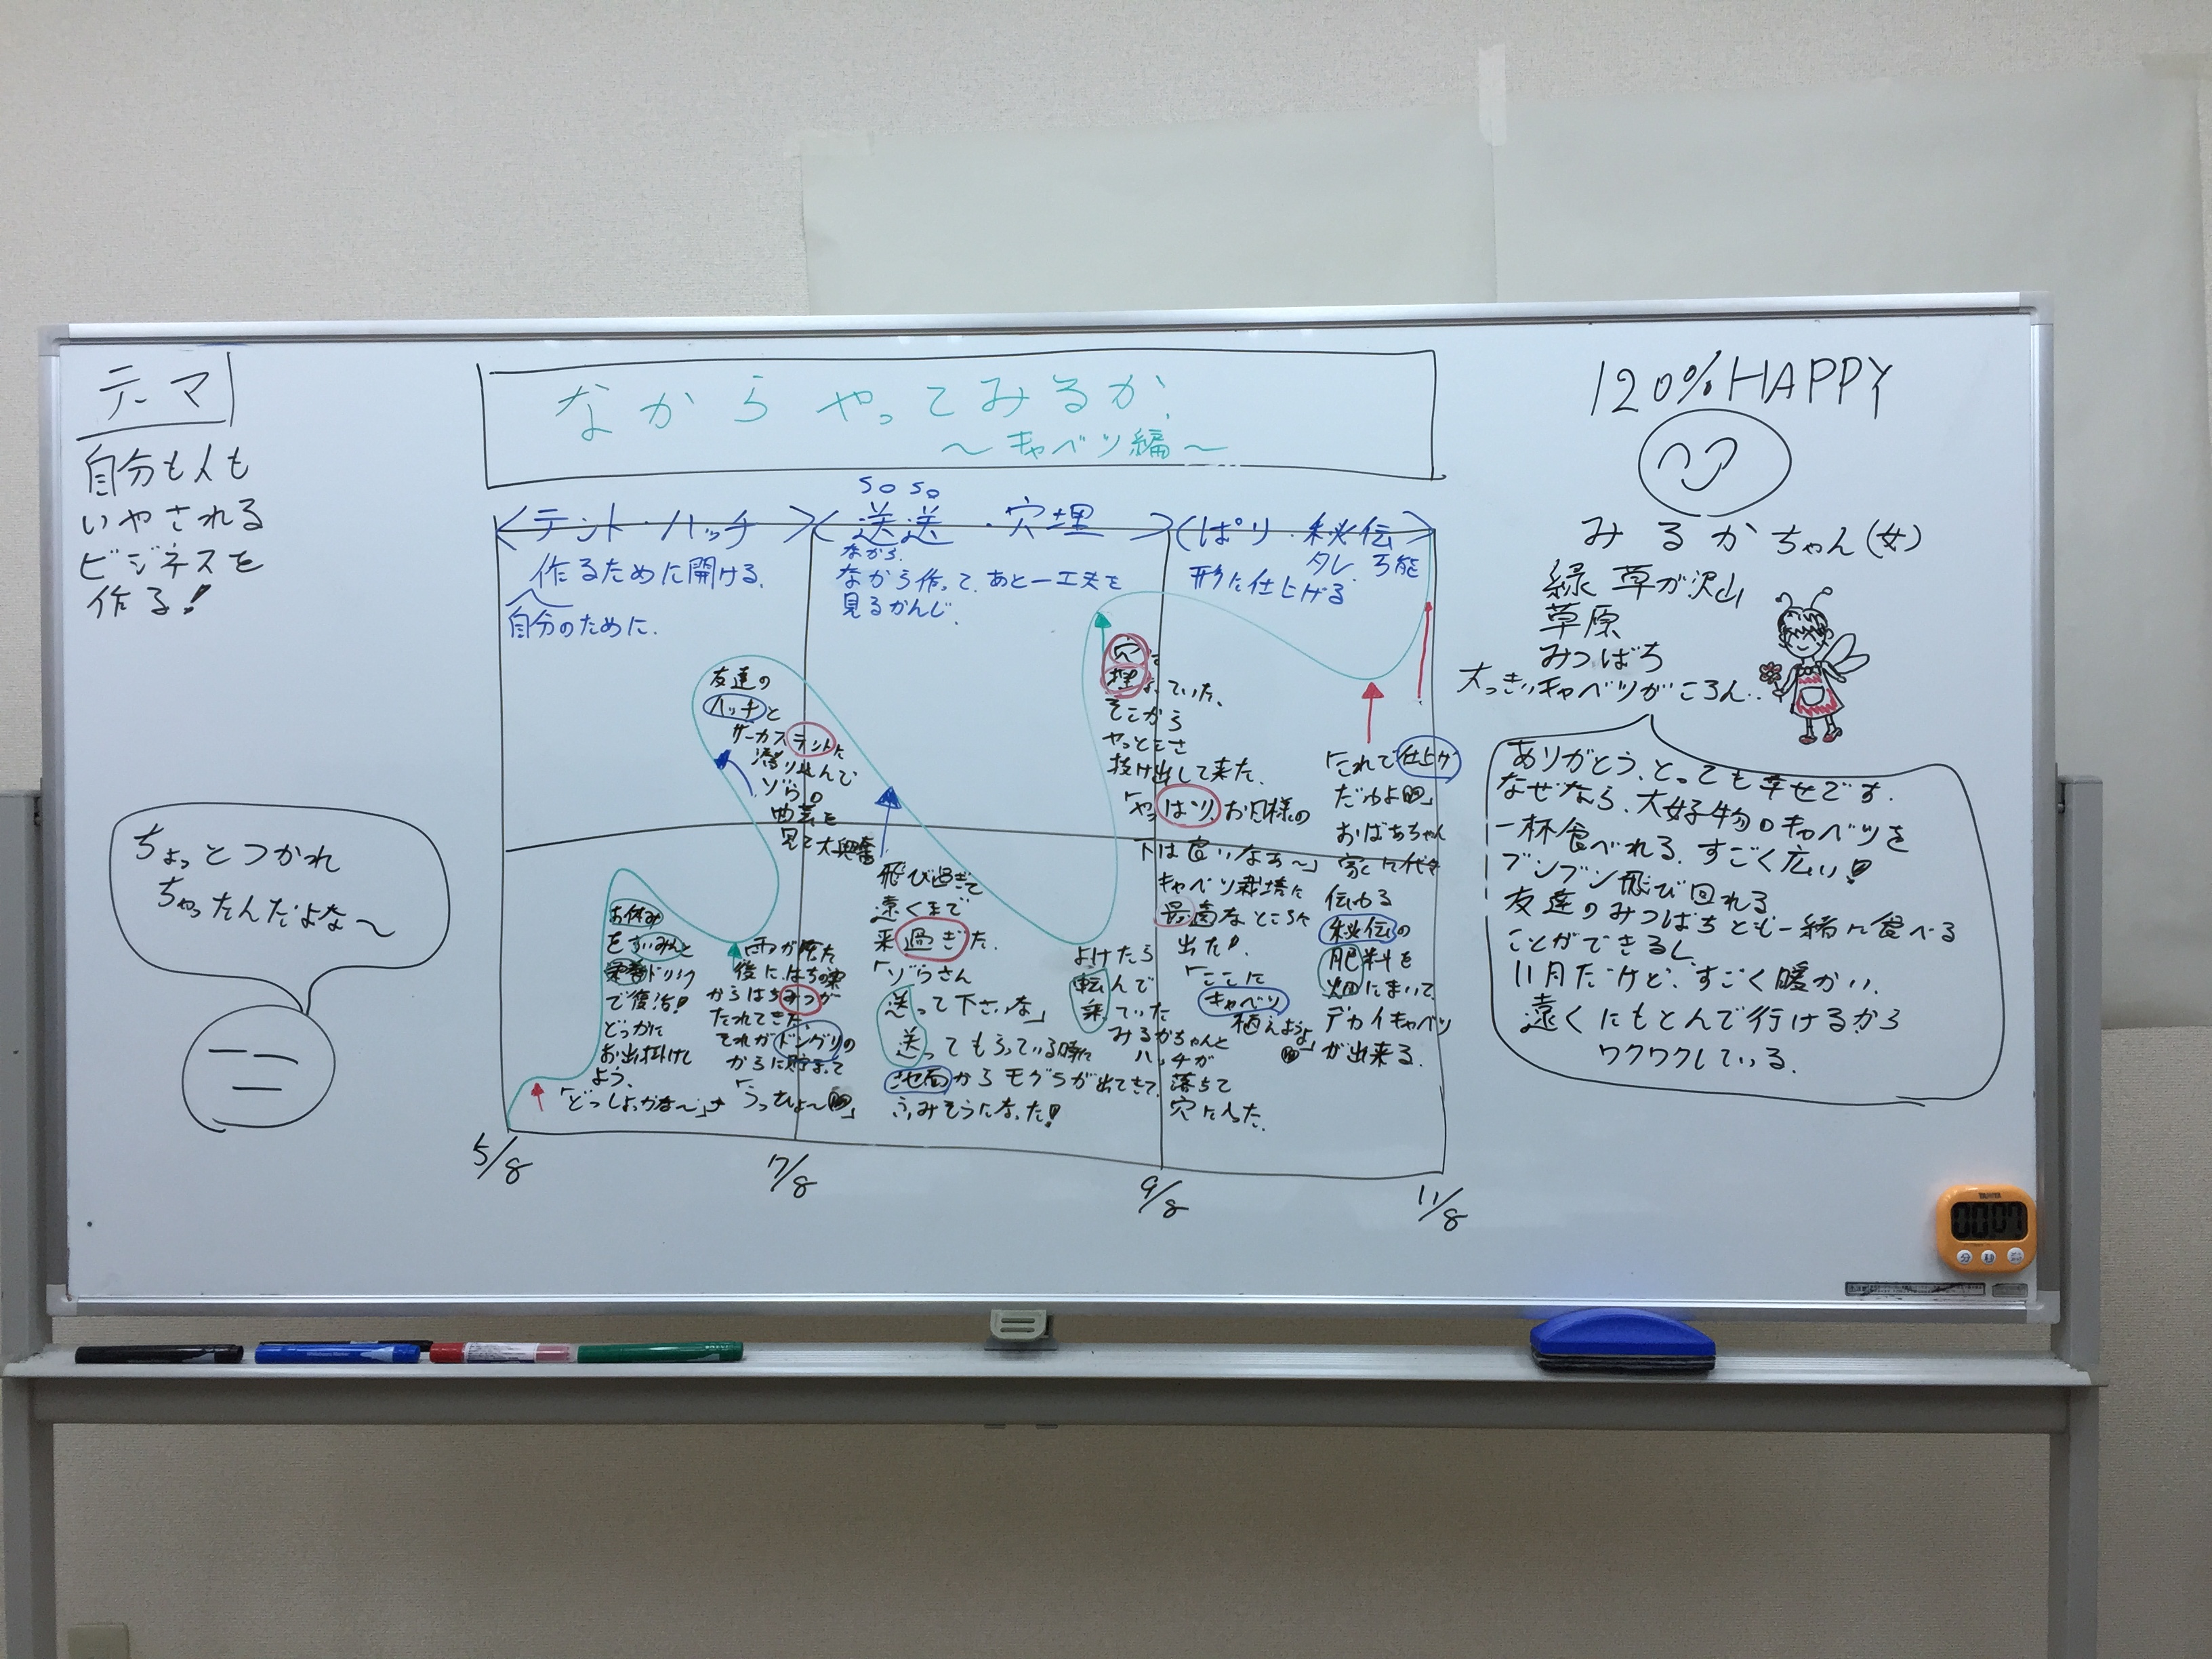 テーマ
自分も人も
いやされる
ビジネスを
作る!
ちょっとつかれ
ちゃったんだよな〜
なからやってみるか
〜キャベツ編〜
テント・ハッチ
作るために開ける.
自分のために.
so so
送送・穴埋
なから.
なから作って、あと一工夫を
見るかんじ.
ぱり・秘伝
タレ 万能
形に仕上げる
「どっしょっかな〜」
お休み
をすいみんと
栄養ドリンク
で復活!
どっかに
お出掛けし
よう.
雨が
後に、はちの巣
からはちみつが
たれてきた.
それがドングリの
からに貯まって
「うっひょ〜」
友達の
ハッチと
サーカステントに
潜り込んで
ゾウの
曲芸を
見て大興奮
飛び過ぎて
遠くまで
来過ぎた.
「ゾウさん
送って下さいな」
送ってもらっている時に
地面からモグラが出てきて.
ふみそうになった!
よけたら
転んで
乗っていた
みるかちゃんと
ハッチが
落ちて
穴に入った.
穴は
埋まっていた.
そこから
やっとこさ
抜け出して来た.
「やっぱり、お日様の
下は良いなぁ〜」
キャベツ栽培に
最適なところに
出た!
「ここに
キャベツ
植えようよ」
「これで仕上げ
だわよ」
おばあちゃん
家に代々
伝わる
秘伝の
肥料を
畑にまいて、
デカイキャベツ
が出来る.
5/8
7/8
9/8
11/8
120%HAPPY
みるかちゃん(女)
緑 草が沢山
草原
みつばち
大っきいキャベツがころん..
ありがとう、とっても幸せです.
なぜなら、大好物のキャベツを
一杯食べれる.すごく広い!
ブンブン飛び回れる
友達のみつばちとも一緒に食べる
ことができるし
11月だけど、すごく暖かい.
遠くにもとんで行けるから
ワクワクしている.
TANITA
00:07